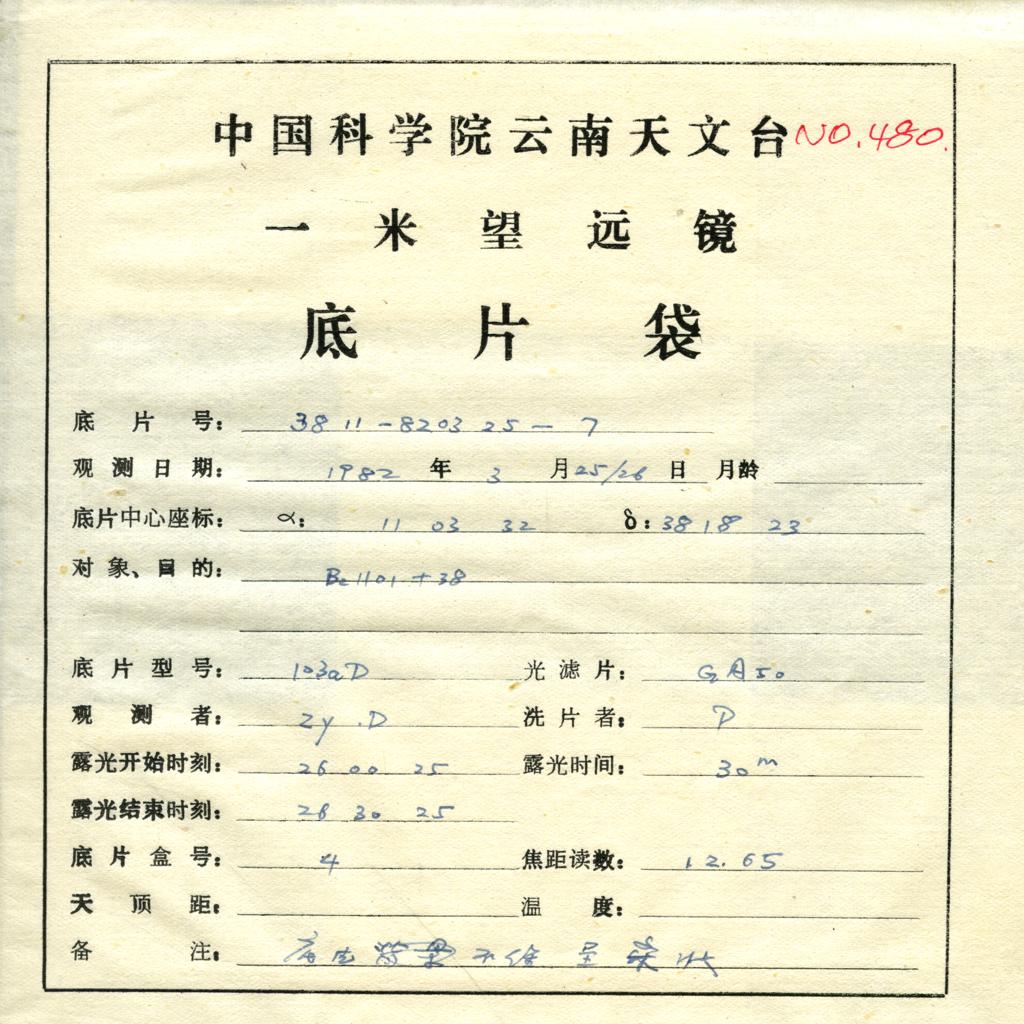 中国科学院云南天文台 NO.480.
一米望远镜
底片袋
底片号: 3811-820325-7
观测日期: 1982 年 3 月 25/26 日 月龄
底片中心座标: α: 11 03 32 δ: 38 18 23
对象、目的: B21101+38
底片型号: 103aD 光滤片: GG A50
观测者: Zy.D 洗片者: D
露光开始时刻: 26 00 25 露光时间: 30m
露光结束时刻: 26 30 25
底片盒号: 4 焦距读数: 12.65
天顶距: 温度:
备注: 背景 不 呈 状